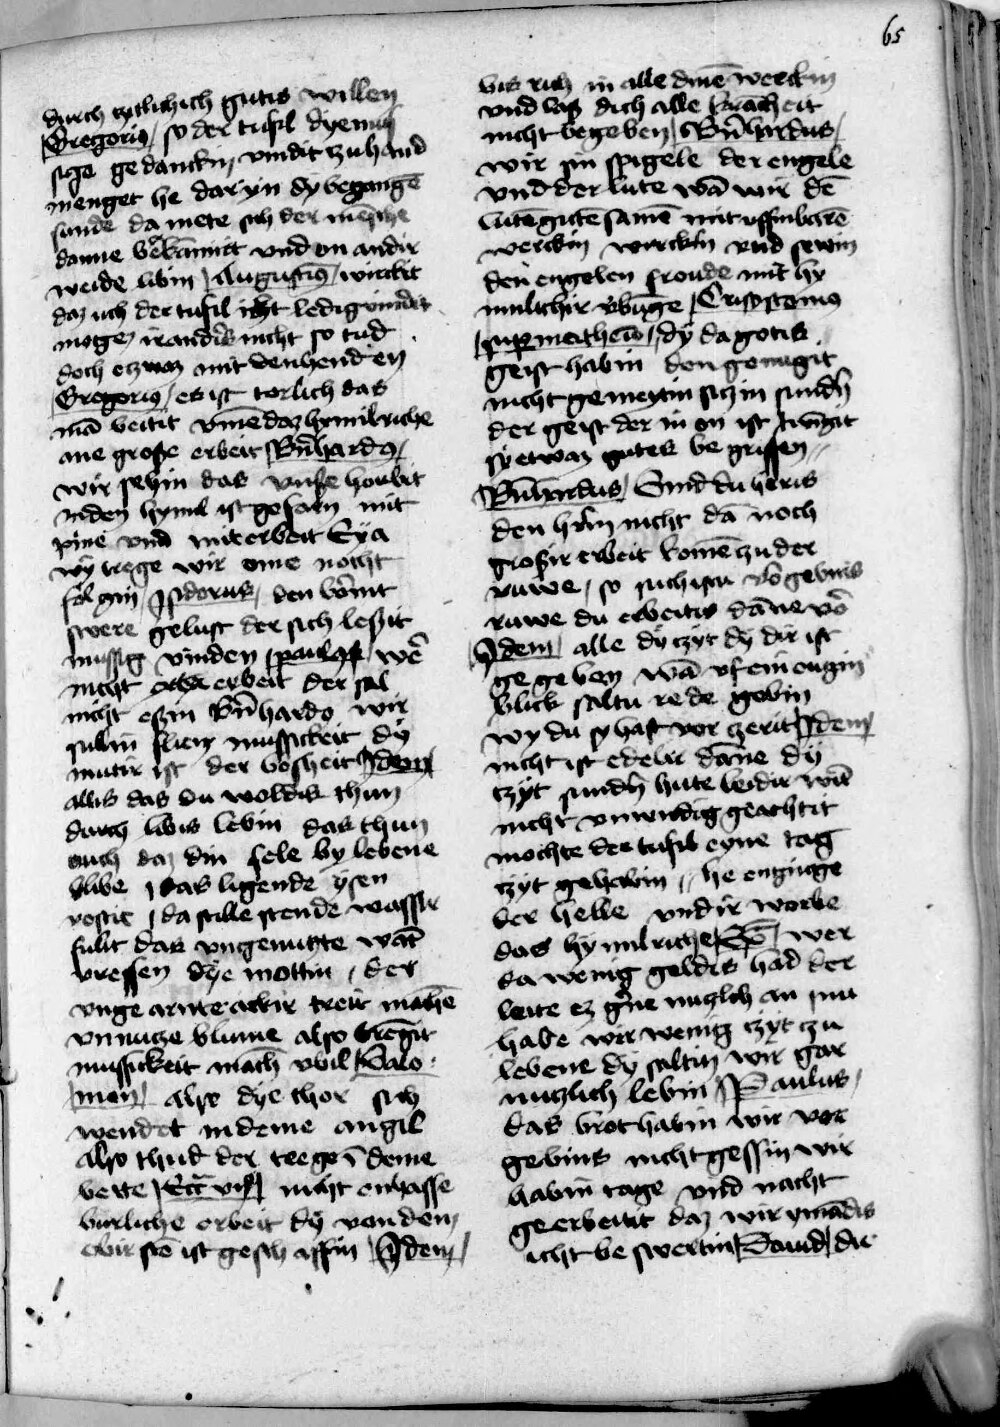 65
durch zitlichich gutis willen
Gregoriꝯ so der tufil dye
sige gedanckin vindit zu hand
menget he dar yn dy begangē
sunde da mete sich der mēsche
danne bekūmirt vnd en andir
weide libin Augustiꝯ wirckit
daz uch der tufil icht ledig vinde
moge irandirs nicht so tud
doch etzwaz mit den henden
Gregoriꝯ es ist torlich das
mā beitit vmē daz hymilriche
ane große erbeit Bn̄hardꝯ
wir sehin das vnse houbit
in den hymil ist gefarn mit
pine vnd mit erbeit Eya
wy trege wir eme nocht
folgin Isidorus den
swere gelust der sich leszit
mussig vinden paulꝯ wē
nicht erbeit der sal
nicht eszin Bn̄hardꝯ wir
sullin flien mussickeit dy
mutir ist der bosheit Idem
allis das du woldist thun
durch libis lebin das thun
ouch daz din sele by lebene
blibe das ligende ysen
rostit da stille stende wassir
fulit das vngenutte wāt
vressen dye mottin der
vnge arnte ackir treit māche
vnnutze blume also brēgit
mussickeit māch vbil Salo
mon also dye thor sich
wendet in deme angil
also thud der trege ī deme
bette nicht enhasse
burliche erbeit dy von dem
obirstē ist geschaffin Idem
bis rich in alle dinē werckin
vnd las dich alle krācheit
nicht begeben Bn̄hardus
wir sin spigele der engele
vnd der lute wā wir dē
lutē gutē samē mit uffinbarē
werckin wirckin vnd sewin
den engelen froude mit hy
milichir vbūge Crisostomꝯ
sup matheū dy da gotis
geist habin den genugit
nicht gemeytin sich in sundn̄
der geist der in en ist twīgit
sy etwaz gutes begriffen
Bn̄hardus Sind du heris
den hn̄ nicht dā noch
groszir erbeit komē zu der
ruwe so suchistu v̄gebnis
ruwe du erbeitis dāne v̄
Idem alle dy czyt dy dir ist
gegeben wā vf ein ougin
blick saltu rede gebin
wy du sy hast vor zerit Idem
nicht ist edelir dāne dy
czyt sundn̄ hute leidir wirt
nicht vnwirdig geachtit
mochte der tufil eyne tag
czyt gehabin he enginge
der helle vnd ir worbe
das hymilriche wer
da wenig geldis had der
leite ez gn̄e nutzlich an nu
habe wir wenig czyt czu
lebene dy saltin wir gar
nutzlich lebin Paulus
das brot habin wir vor
gebins nicht gessin wir
habin tage vnd nacht
ge erbeitit daz wir ymādis
icht beswertin Dauid die